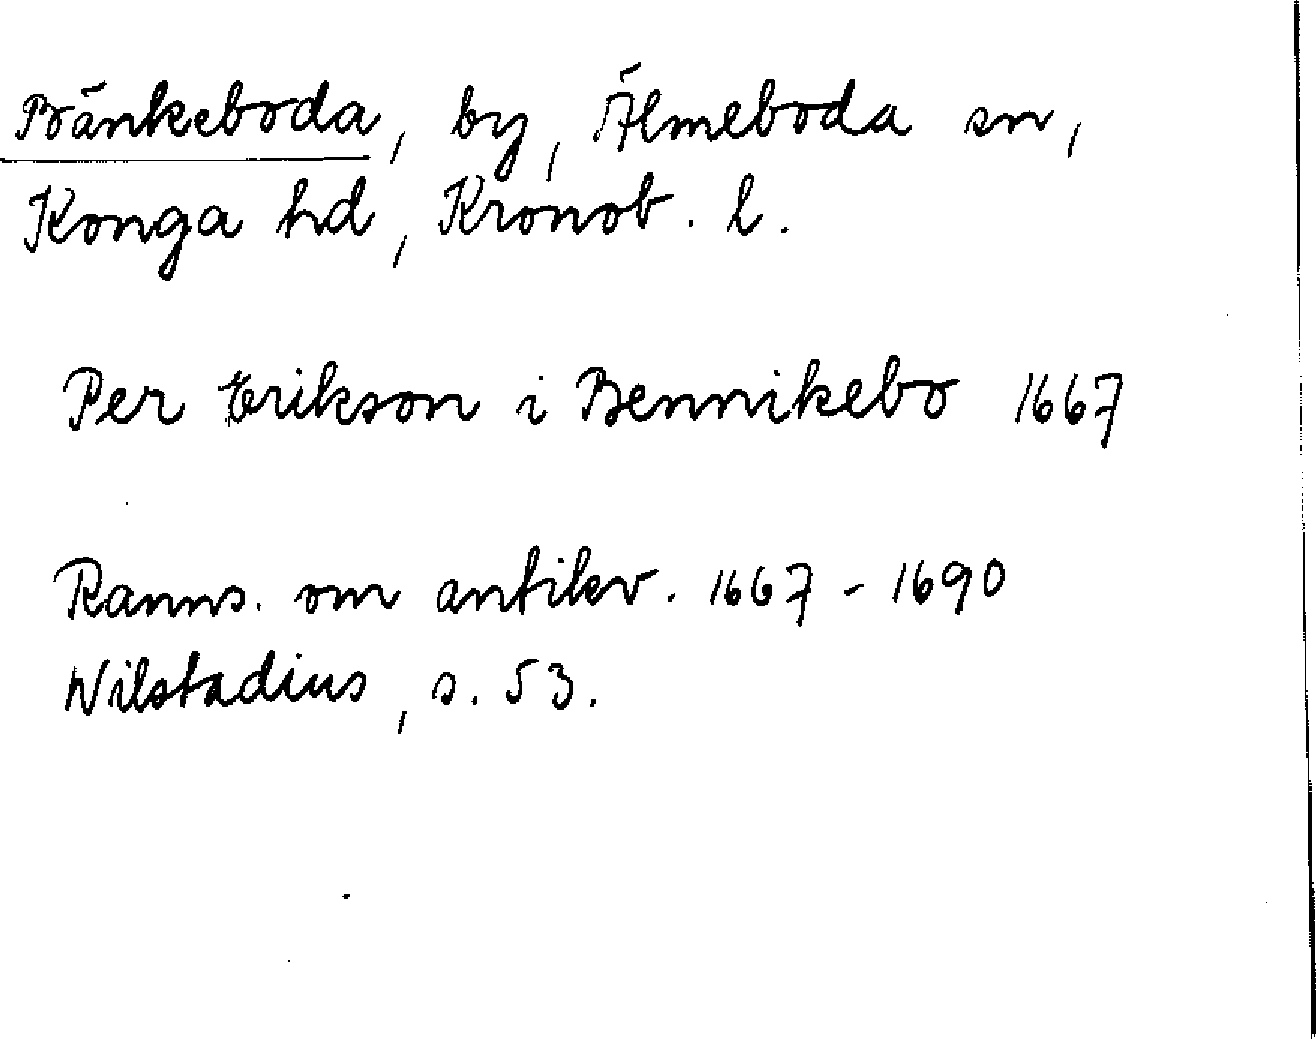 Bänkeboda, by, Älmeboda sn,
Konga hd, Kronob. l.
Per Erikson i Bennikebo 1667
Ranns. om antikv. 1667 - 1690
Wilstadius, s. 53.